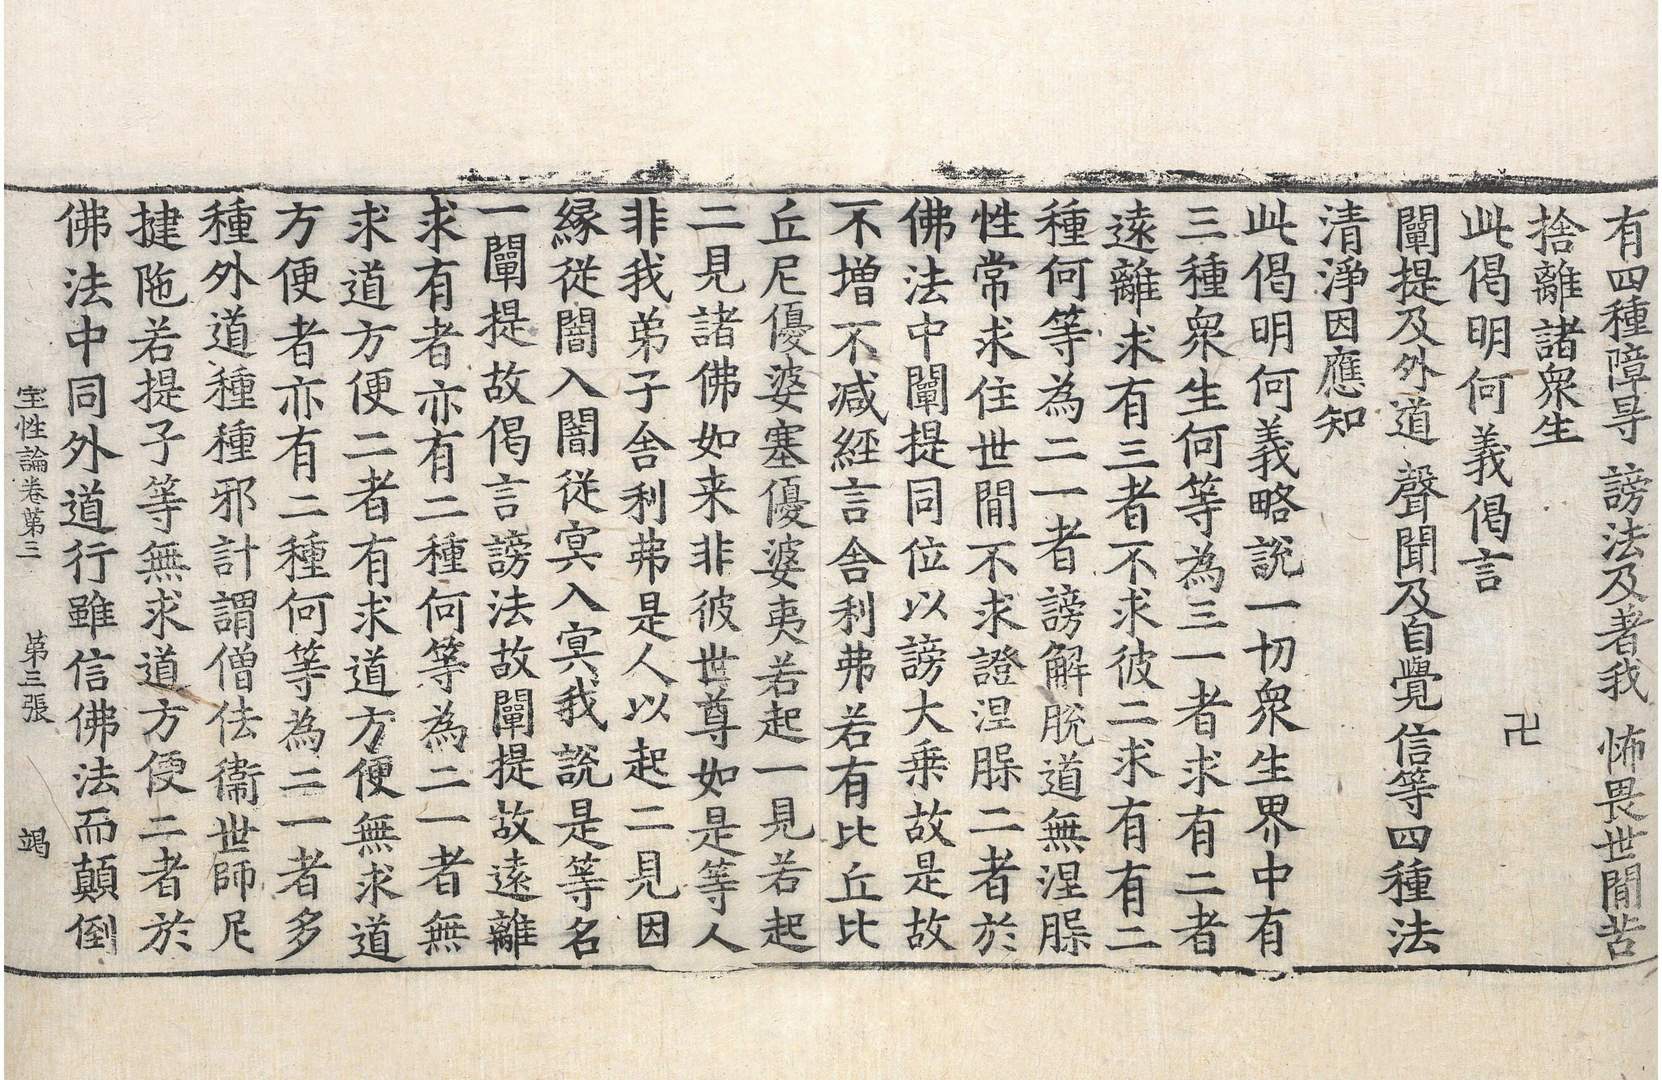 有四種障㝵 謗法及著我 怖畏世間苦
捨離諸衆生
卍
此偈明何義偈言
闡提及外道 聲聞及自覺 信等四種法
清淨因應知
此偈明何義略說一切衆生界中有
三種衆生何等為三一者求有二者
遠離求有三者不求彼二求有有二
種何等為二一者謗解脫道無涅槃
性常求住世間不求證涅槃二者於
佛法中闡提同位以謗大乗故是故
不增不减經言舍利弗若有比丘比
丘尼優婆塞優婆夷若起一見若起
二見諸佛如来非彼世尊如是等人
非我弟子舍利弗是人以起二見因
緣從闇入闇從冥入冥我說是等名
一闡提故偈言謗法故闡提故遠離
求有者亦有二種何等為二一者無
求道方便二者有求道方便無求道
方便者亦有二種何等為二一者多
種外道種種邪計謂僧佉衞世師尼
揵陁若提子等無求道方便二者於
佛法中同外道行雖信佛法而顛倒
宝性論卷第三 第三張 竭